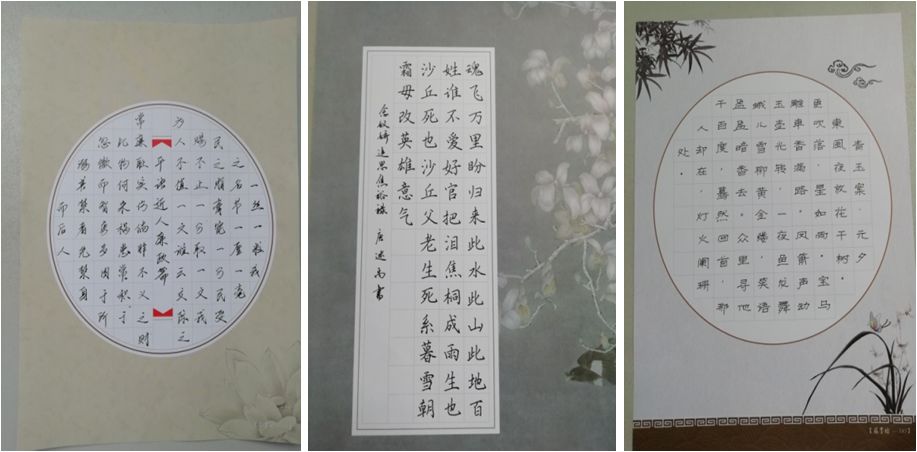 一丝一粒我
之名节一厘一毫
民之脂膏宽一分民受
赐不止一分取一文我
为人不值一文谁云交际之
平语近人廉政篇
常廉耻实伤倘非不义之财
此物何来祸患常积于
忽微而智勇多困于所
溺善禁者先禁身
而后人
魂飞万里盼归来此水此山此地百
姓谁不爱好官把泪焦桐成雨生也
沙丘死也沙丘父老生死系暮雪朝
霜毋改英雄意气
念奴娇追思焦裕禄 唐 书
青玉案 元夕
東風夜放花千树。
更吹落，星如雨。宝马
雕車香满路。凤箫声动
玉壶光转，一夜鱼龙舞
蛾儿雪柳黄金缕。笑语
盈盈暗香去。众里寻他
千百度，蓦然回首，那
人却在，灯火阑珊
处。